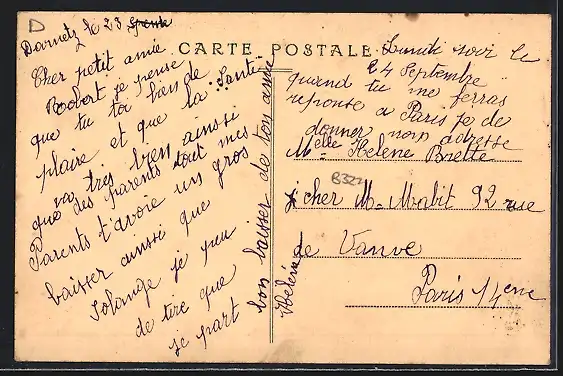 D
CARTE POSTALE
Darnetz le 23
Cher petit amie
Robert je pense
que tu toi bien de
plaire et que la Santé
va tres bien ainssi
que des parents tout mis
Parents t'avoie un gros
baisser ainssi que
Solange je peu
de tire que
je part
Lundi soir le
24 Septembre
quand tu me ferras
reponse a Paris je de
donner mon adresse
Melle Helene Brette
B322
cher M. Mabit 92 rue
de Vanve
Paris 14eme
bon baisser de ton amie
Helene